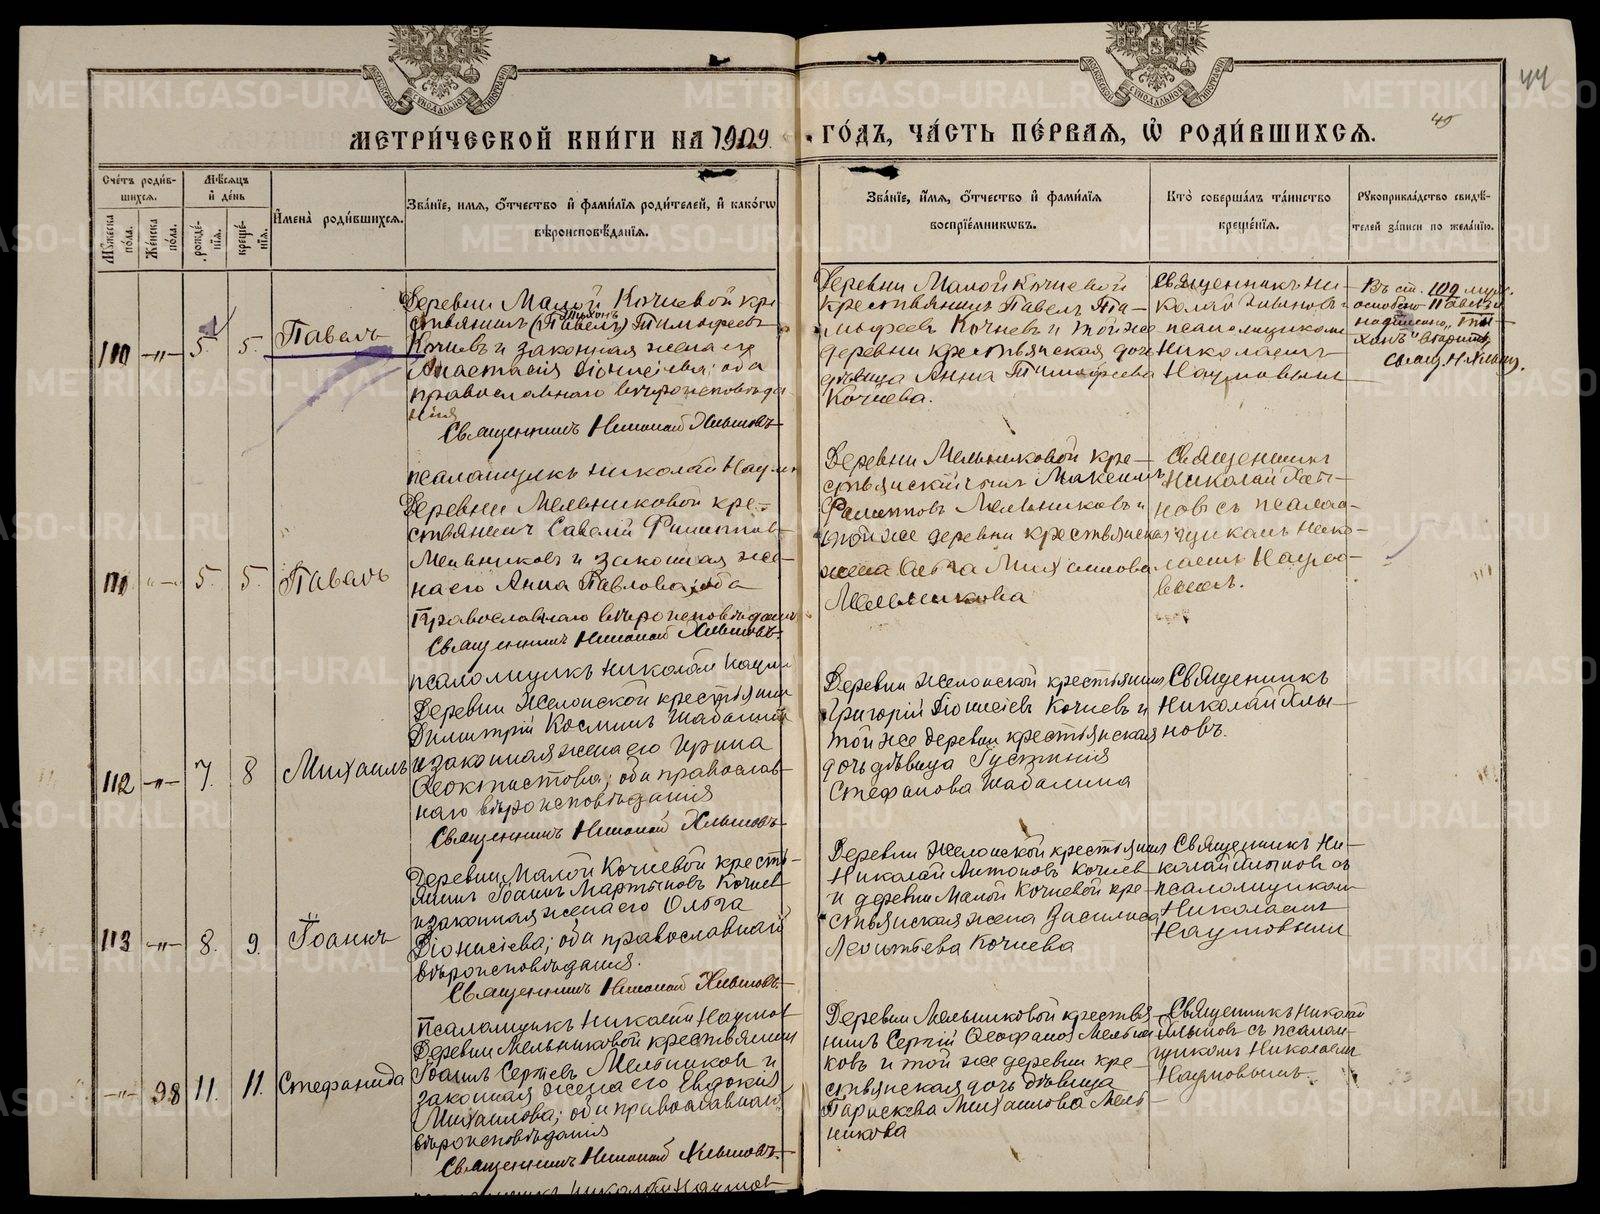 44
45
МЕТРИ́ЧЕСКОЙ КНИ́ГИ НА 1909
ГО́ДЪ, ЧА́СТЬ ПЕ́РВАѦ, Ѡ҆ РОДИ́ВШИХСѦ.
Сче́тъ роди́в-
шихсѧ.
Мѣ́сѧцъ
и҆ де́нь
Мꙋ́жеска по́ла.
Же́нска по́ла.
рожде́-
нїѧ.
креще́-
нїѧ.
И҆мена̀ роди́вшихсѧ.
Зва́нїе, и҆мѧ, ѻ҆́тчество и҆ фами́лїѧ роди́телей, и҆ како́гѡ
вѣроисповѣ́данїѧ.
Зва́нїе, и҆́мѧ, ѻ҆́тчество и҆ фами́лїѧ
воспрїе́мникѡвъ.
Кто̀ соверша́лъ та́инство
креще́нїѧ.
Рꙋкоприкла́дство свидѣ́-
телей за́писи по жела́нїю.
110
5.
5.
Павелъ
Деревни Малой Кочневой кре
стьянинъ (Павелъ) Тихонъ Тимофеев
Кочневъ и законная жена его
Анастасія Діонисіева; оба
православнаго вѣроисповѣда
нія
Священникъ Николай Хлыновъ
псаломщикъ Николай Наумов
Деревни Малой Кочневой
крестьянинъ Павелъ Ти-
мофеевъ Кочневъ и той же
деревни крестьянская дочь
дѣвица Анна Тимофеева
Кочнева.
Священникъ Ни-
колай Хлыновъ с
псаломщикомъ
Николаемъ
Наумовымъ
Въ ст. 109 муж.
надписано „Ти-
хонъ“ вѣрить
свящ. Н. Хлынов.
111
5.
5.
Павелъ
Деревни Мельниковой кре-
стьянинъ Савелій Филиппов
Мельниковъ и законная же-
на его Анна Павловна; оба
Православнаго вѣроисповѣданія
Священникъ Николай Хлыновъ.
псаломщикъ Николай Наумов
Деревни Мельниковой кре-
стьянскій сынъ Максимъ
Филипповъ Мельниковъ и
той же деревни крестьянская
жена Ольга Михаилова
Мельникова
Священникъ
Николай Хлы-
новъ съ псалом-
щикомъ Нико-
лаемъ Наумо-
вымъ.
112
7.
8
Михаилъ
Деревни Желонской крестьянин
Димитрій Космин Шабалинъ
и законная жена его Ирина
Феоктистовна; оба православ-
наго вѣроисповѣданія
Священникъ Николай Хлыновъ
Деревни Желонской крестьянинъ
Григорій Діонисіевъ Кочневъ и
той же деревни крестьянская
дочь дѣвица Густинія
Стефанова Шабалина
Священникъ
Николай Хлы-
новъ.
113
8.
9.
Іоаннъ
Деревни Малой Кочневой кресть-
янинъ Іоаннъ Мартыновъ Кочнев
и законная жена его Ольга
Діонисіева; оба православнаго
вѣроисповѣданія.
Священникъ Николай Хлыновъ
Псаломщикъ Николай Наумов
Деревни Желонской крестьянин
Николай Антоновъ Кочнев
и деревни Малой Кочневой кре-
стьянская жена Василиса
Леонтьева Кочнева
Священникъ Ни-
колай Хлынов съ
псаломщиком
Николаемъ
Наумовымъ
98
11.
11.
Стефанида
Деревни Мельниковой крестьянин
Іоаннъ Сергѣевъ Мельников и
законная жена его Евдокія
Михаилова; оба православнаго
вѣроисповѣданія
Священникъ Николай Хлыновъ.
псаломщикъ Николай Наумов
Деревни Мельниковой крестья-
нинъ Сергій Феофанов Мельни
ковъ и той же деревни кре-
стьянская дочь дѣвица
Параскева Михаилова Мель-
никова
Священникъ Николай
Хлыновъ съ псалом-
щикомъ Николаемъ
Наумовымъ.
METRIKI.GASO-URAL.RU